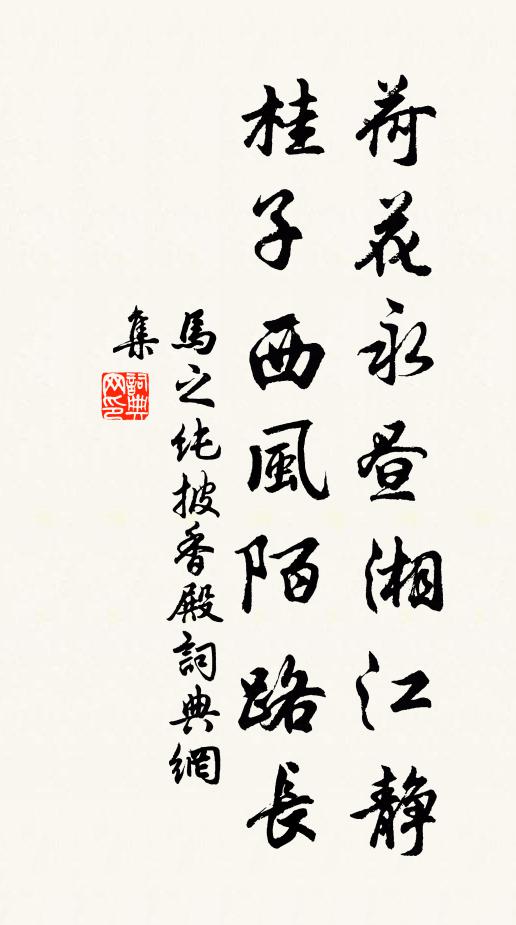 荷花永昼湘江静
桂子西風陌路長
馬之純披香殿詞典網
集
詞典
网印